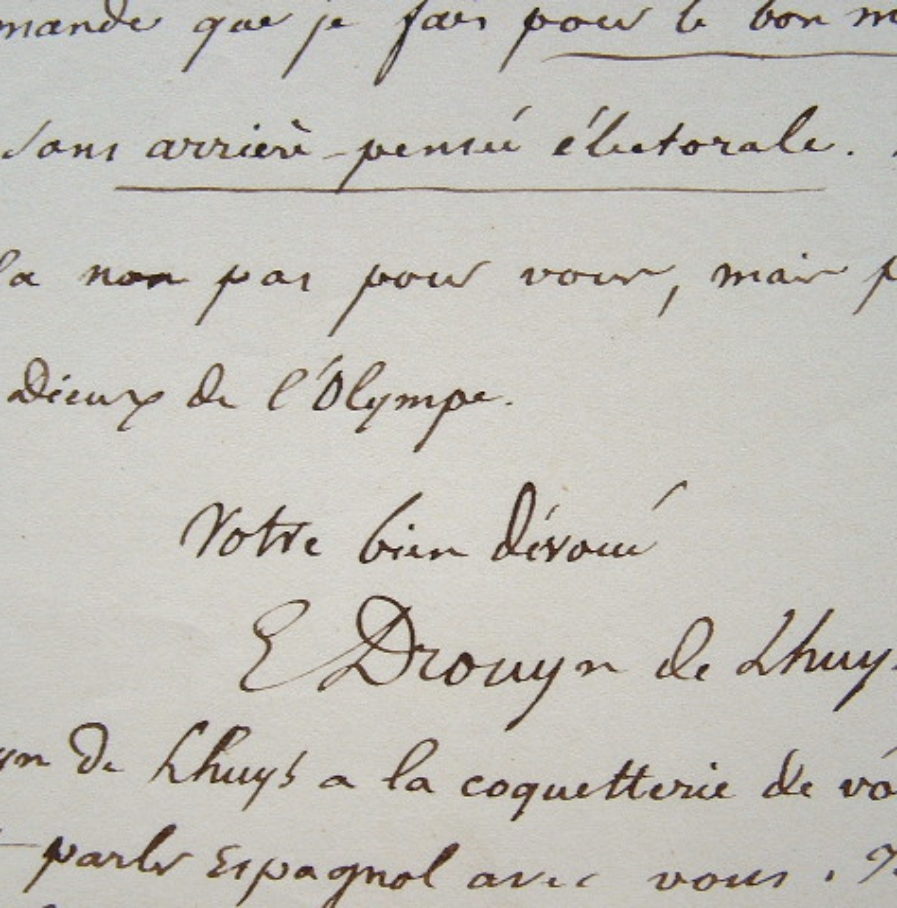 mande que je fais pour le bon m
sans arrière-pensée électorale.
la non pas pour vous, mais p
Dieux de l'Olympe.
Votre bien dévoué
E Drouyn de Lhuys
yn de Lhuys a la coquetterie de vo
parler Espagnol avec vous.